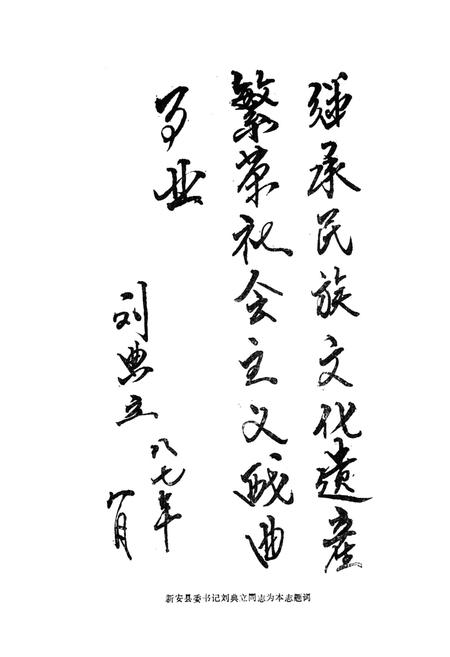 继承民族文化遗產
繁荣社会主义戏曲
事业
刘典立
八七年
八月
新安县委书记刘典立同志为本志题词